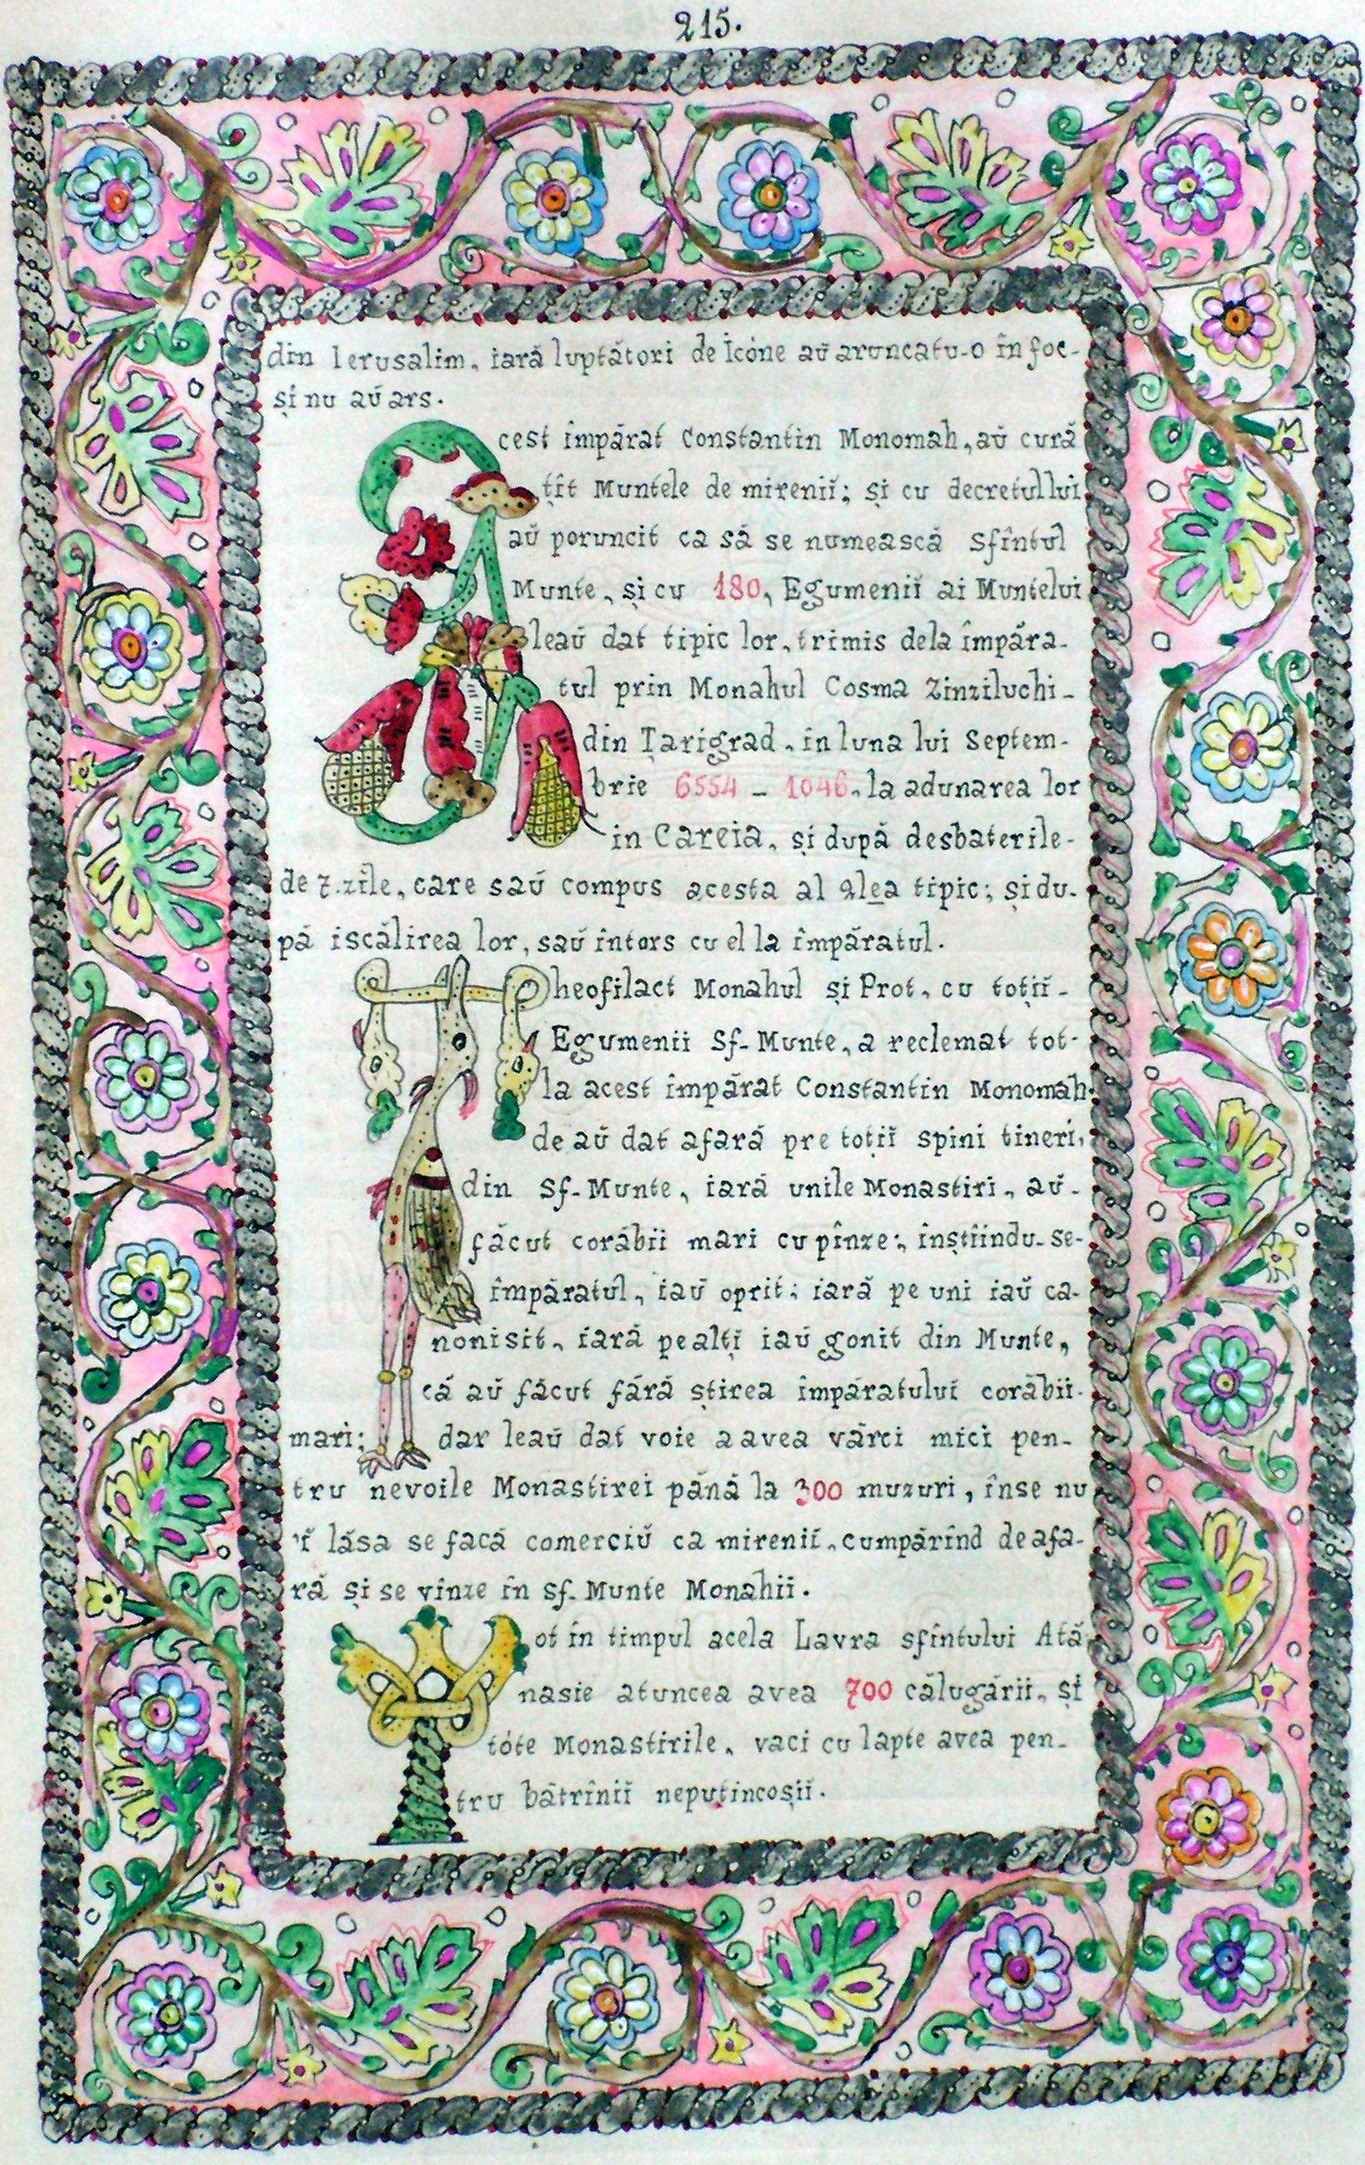 215.
din Ierusalim, iară luptători de Icóne aŭ aruncatu-o în foc-
și nu aŭ ars.
Acest împărat Constantin Monomah, aŭ cură
țit Muntele de mirenii; și cu decretullui
aŭ poruncit ca să se numească Sfîntul
Munte, și cu 180, Egumenii ai Muntelui
leaŭ dat tipic lor, trimis dela împăra-
tul prin Monahul Cosma Zinziluchi-
din Țarigrad, in luna lui Septem-
brie 6554 - 1046, la adunarea lor
in Careia, și după desbaterile-
de 7. zile, care saŭ compus acesta al 2lea tipic; și du-
pă iscălirea lor, saŭ întors cu el la împăratul.
Theofilact Monahul și Prot, cu toții-
Egumenii Sf- Munte, a reclemat tot-
la acest împărat Constantin Monomah
de aŭ dat afară pre toții spini tineri,
din Sf- Munte, iară unile Monastiri, aŭ-
făcut corăbii mari cu pînze; înștiindu-se-
împăratul, iaŭ oprit; iară pe uni iaŭ ca-
nonisit, iară pe alți iaŭ gonit din Munte,
că aŭ făcut fără știrea împăratului corăbii-
mari; dar leaŭ dat voie a avea vărci mici pen-
tru nevoile Monastirei până la 300 muzuri, înse nu
'ĭ lăsa se facă comerciŭ ca mirenii, cumpărînd de afa-
ră și se vînze în Sf- Munte Monahii.
Tot în timpul acela Lavra sfîntului Ată
nasie atuncea avea 700 călugării, și
tóte Monastirile, vaci cu lapte avea pen-
tru bătrînii neputincoșii.